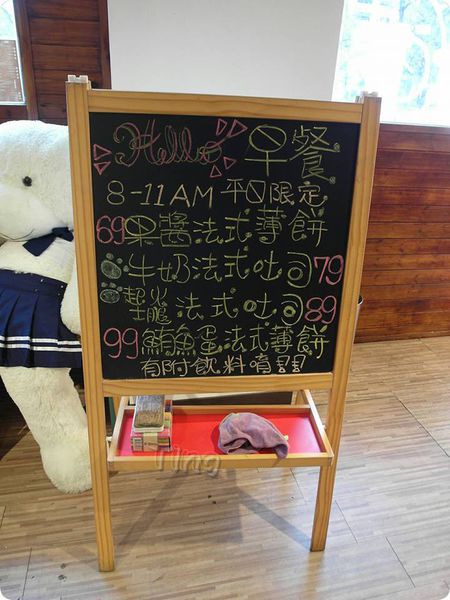 Hello 早餐
8-11AM 平日限定
69果醬法式薄餅
牛奶法式吐司79
起火腿法式吐司89
99鮪魚蛋法式薄餅
有附飲料唷!!
Ting